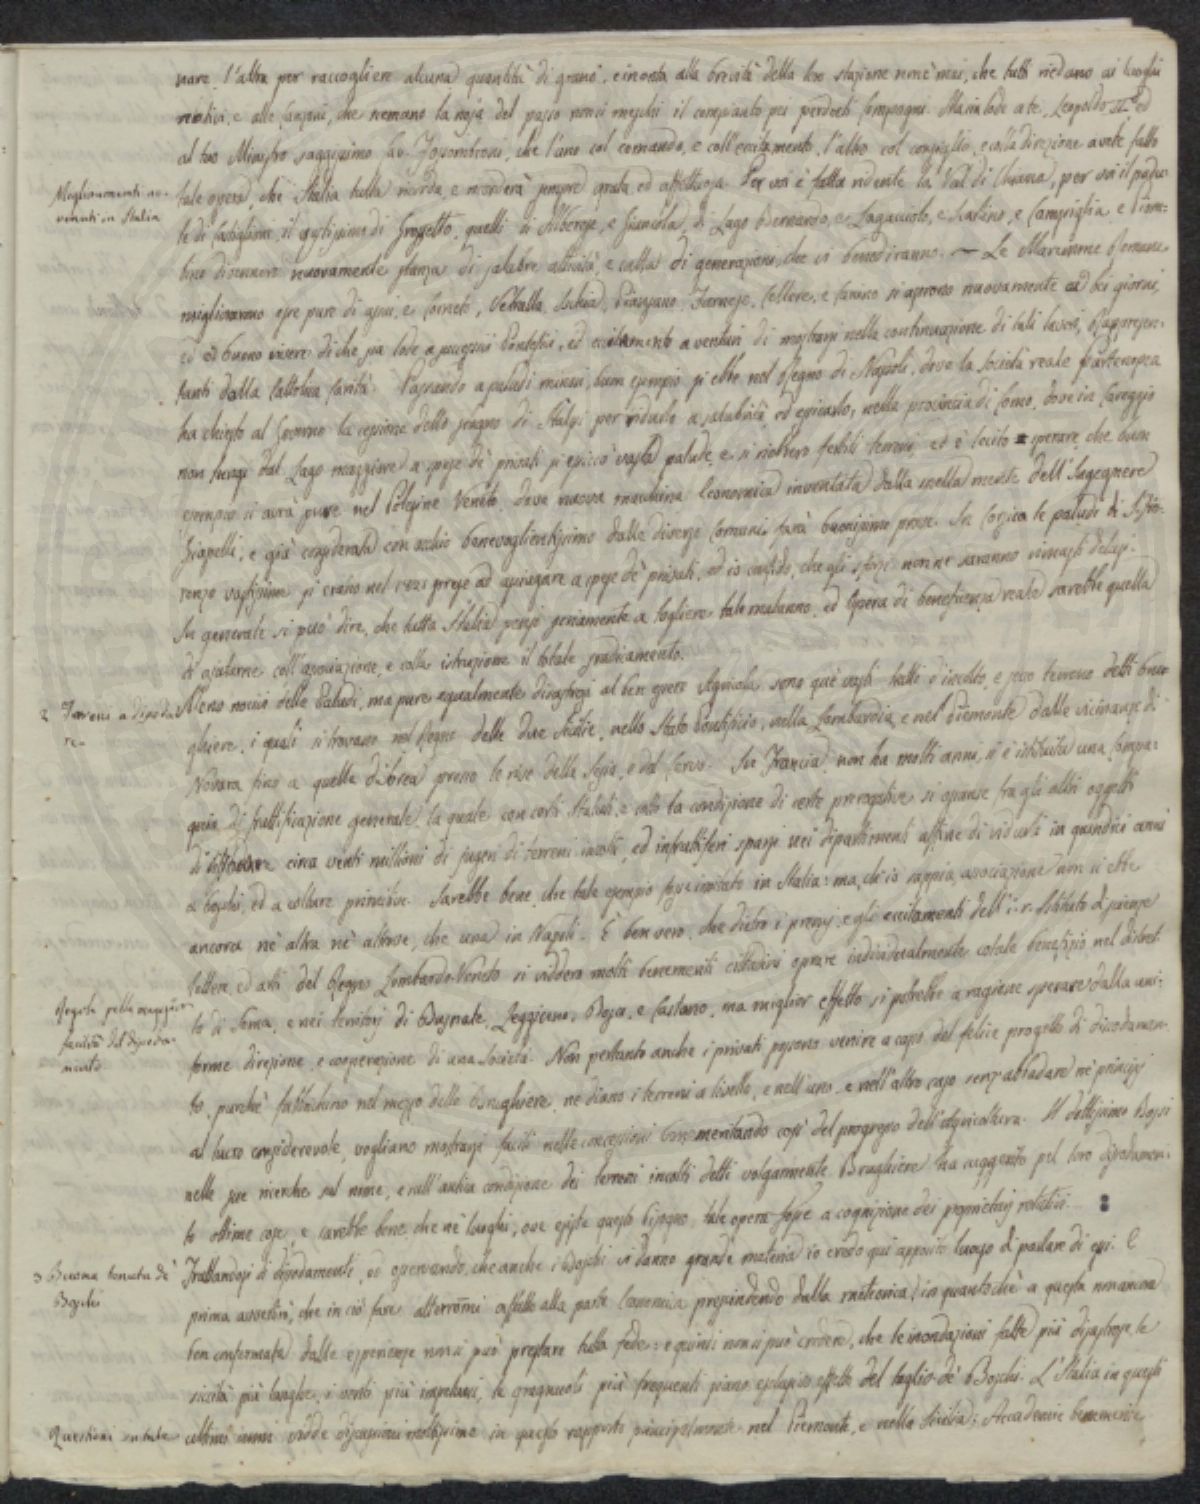 nare l'altra per raccogliere alcuna quantità di grano, e in onta alla brevità della loro stazione non è mai, che tutti riedano ai luoghi
nativi, e alle Canzoni, che scemano la noja del passo non si meschi il compianto pei perduti Compagni. Sia in lode a te, Leopoldo II.º ed
al tuo Ministro saggissimo Cav. Fossombroni, che l'uno col comando, e coll'eccitamento, l'altro col consiglio, e colla direzione avete fatto
Miglioramenti av-
venuti in Italia
tale opera, che Italia tutta ricorda, e ricorderà sempre grata, ed affettuosa. Per voi è fatta ridente la Val di Chiana, per voi il padu-
le di Castiglione, il vastissimo di Grosseto, quelli di Alberese, e Giuncola, di Lago Bernardo, e Lagacciolo, e Scarlino, e Campiglia e Piom-
bino divennero nuovamente stanza di salubre attività, e culla di generazioni, che vi benediranno. — Le Maremme Romane
migliorarono esse pure di assai, e Corneto, Vetralla, Ischia, Pianzano, Farnese, Cellere, e Canino si aprono nuovamente a bei giorni,
ed a buono vivere di che sia lode a successivi Pontefici, ed eccitamento a venturi di mostrarsi nella continuazione di tali lavori, Rappresen-
tanti della Cattolica Carità. Passando a paludi minori, buon esempio si ebbe nel Regno di Napoli, dove la Società reale Partenopea
ha chiesto al Governo la cessione dello stagno di Salpi per ridurlo a salubrità, ed essicarlo, nella provincia di Como, dove in Coreggio
non lungi dal Lago maggiore a spese de' privati si essiccò vasta palude, e si riebbero fertili terreni, ed è lecito sperare, che buon
esempio si avrà pure nel Polesine Veneto, dove nuova macchina Economica inventata dalla snella mente dell'Ingegnere
Grapelli, e già considerata con occhio benevoglientissimo dalle diverse Comuni farà buonissime prove. In Corsica le paludi di S. Fio-
renzo vastissime si erano nel 1825 prese ad asciugare a spese de' privati, ed io confido, che gli sforzi non ne saranno rimasti delusi.
In generale si può dire, che tutta Italia pensi seriamente a togliere tale malanno, ed Opera di beneficenza reale sarebbe quella
di ajutarne coll'associazione, e colla istruzione il totale sradicamento.
2 Terreni a dissoda-
re-
Meno nocivi delle Paludi, ma pure egualmente disastrosi al ben essere Agricola sono que' vasti tratti d'incolto, e sodo terreno detti bru-
ghiere, i quali si trovano nel Regno delle due Sicilie, nello Stato Pontificio, nella Lombardia, e nel Piemonte dalle vicinanze di
Novara fino a quelle d'Ivrea presso le rive della Sesia, e del Cervo. In Francia, non ha molti anni, si è istituita una Compa-
gnia di fruttificazione generale, la quale con certi Statuti, e sotto la condizione di certe prerogative si espresse fra gli altri oggetti
di dissodare circa venti millioni di jugeri di terreni incolti, ed infruttiferi sparsi nei dipartimenti affine di ridurli in quindici anni
a boschi, ed a colture primitive. Sarebbe bene, che tale esempio fosse imitato in Italia: ma, ch'io sappia, associazione non si ebbe
ancora nè altra nè altrove, che una in Napoli. È ben vero, che dietro i premj, e gli eccitamenti dell'i. r. Istituto di scienze
lettere, ed arti del Regno Lombardo-Veneto si viddero molti benemeriti cittadini oprare individualmente cotale benefizio nel distret-
Regole pella maggior
facilità del dissoda-
mento
to di Soma, e nei territorj di Busnate, Leggiuno, Bosco, e Castano, ma miglior effetto si potrebbe a ragione sperare dalla uni-
forme direzione, e cooperazione di una Società. Non pertanto anche i privati possono venire a capo del felice progetto di dissodamen-
to, purchè fabbrichino nel mezzo delle brughiere, ne diano i terreni a livello, e nell'uno, e nell'altro caso senz'abbadare ne' principj
al lucro considerevole, vogliano mostrarsi facili nelle concessioni benemeritando così del progresso dell'Agricoltura. Il dottissimo Bossi
nelle sue ricerche sul nome, e sull'antica condizione dei terreni incolti detti volgarmente Brughiere ha suggerito pel loro dissodamen-
to ottime cose, e sarebbe bene, che ne' luoghi, ove esiste questo bisogno tale opera fosse a cognizione dei proprietarj rispettivi.
3 Buona tenuta de'
Boschi
Trattandosi di dissodamenti, ed osservando, che anche i Boschi vi danno grande materia io credo qui apposito luogo di parlare di essi. E
prima avvertirò, che in ciò fare atterrommi affatto alla parte Economica prescindendo dalla meteorica, in quantochè a questa non ancora
ben confermata dalle esperienze non si può prestare tutta fede: e quindi non si può credere, che le inondazioni fatte più disastrose, le
siccità più lunghe, i venti più impetuosi, le gragnuole più frequenti siano esclusivo effetto del taglio de' Boschi. L'Italia in questi
Questioni in tale
ultimi anni vidde discussioni moltissime in questo rapporto principalmente nel Piemonte, e nella Sicilia; Accademie benemerite